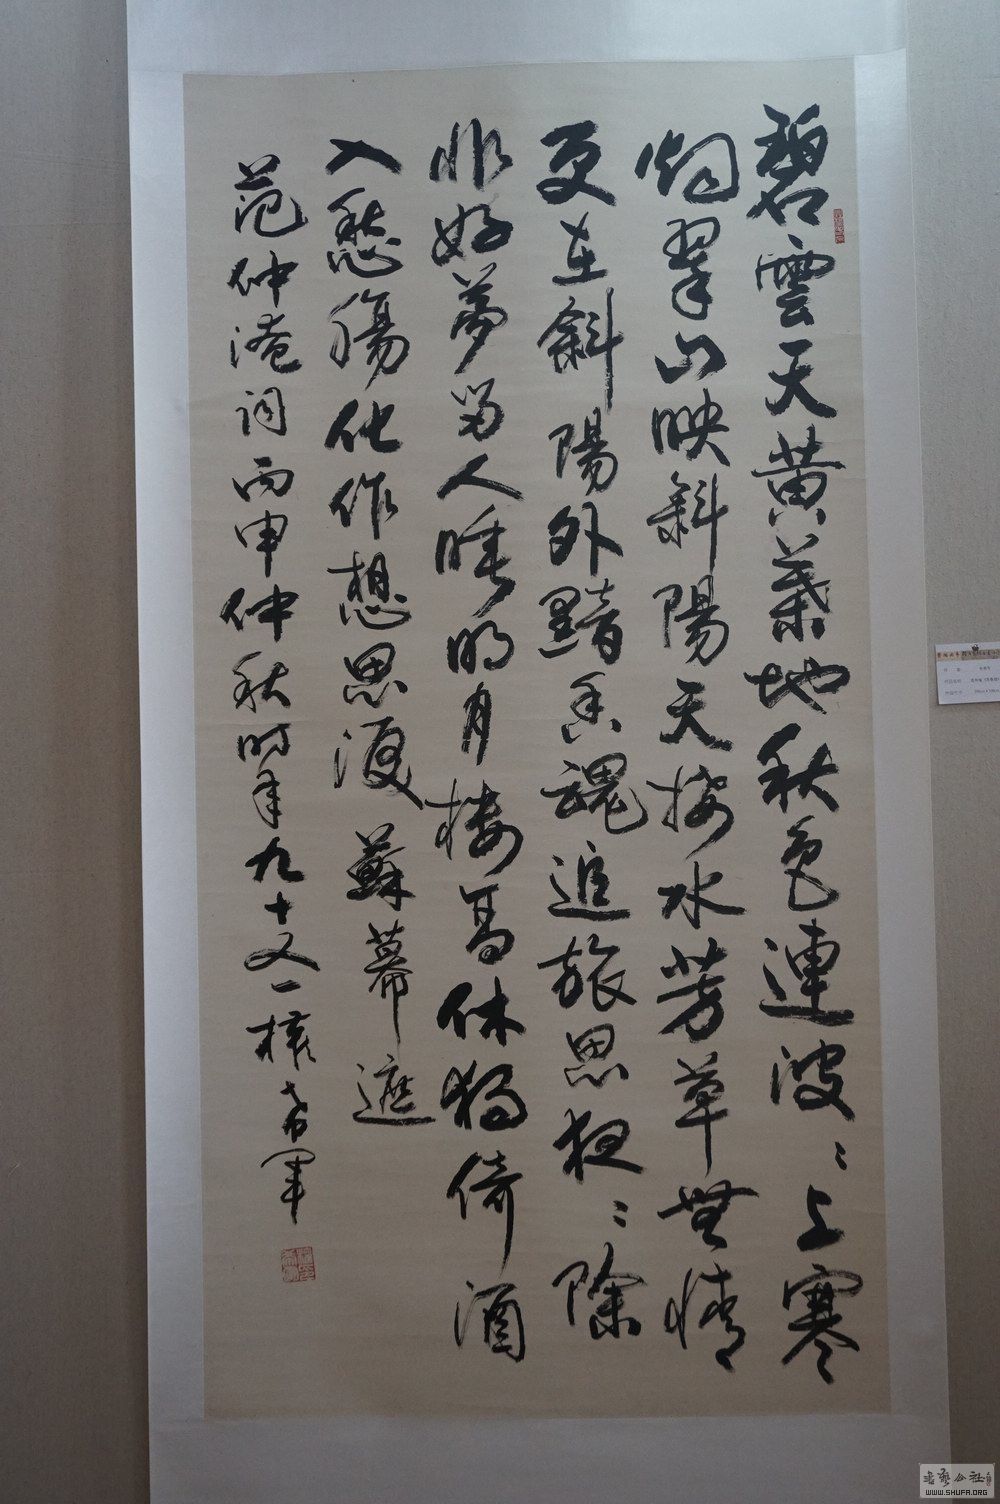 碧雲天黄葉地秋色連波〻上寒
烟翠山映斜陽天接水芳草無情
更在斜陽外黯香魂追旅思夜〻除
非好夢留人睡明月樓高休獨倚酒
入愁腸化作想思淚 蘇幕遮
范仲淹词丙申仲秋时年九十又一權希軍
書藝公社
WWW.SHUFA.ORG